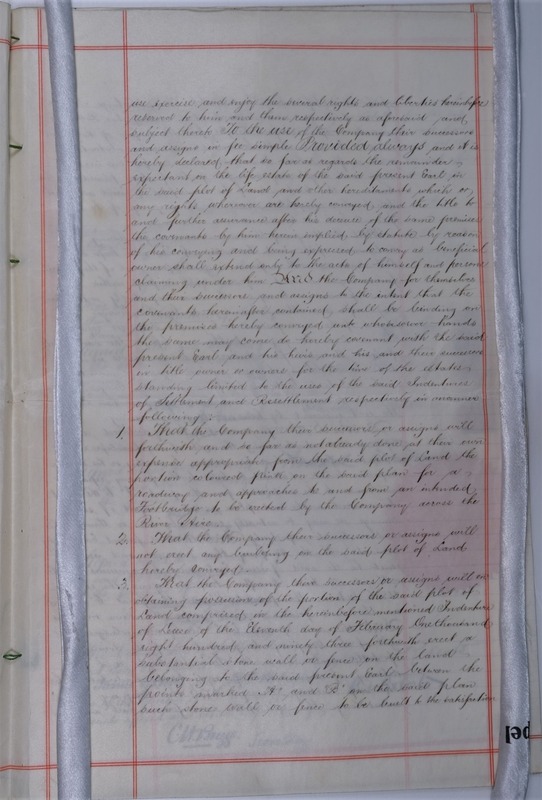 use exercise and enjoy the several rights and liberties hereinbefore
reserved to him and them respectively as aforesaid and
subject thereto To the use of the Company their successors
and assigns in fee simple Provided always and it is
hereby declared that so far as regards the remainder
expectant on the life estate of the said present Earl in
the said plot of Land and other hereditaments which or
any rights whereover are hereby conveyed and the title to
and further assurance after his decease of the same premises
the covenants by him herein implied by statute by reason
of his conveying and being expressed to convey as beneficial
owner shall extend only to the acts of himself and persons
claiming under him And the Company for themselves
and their successors and assigns to the intent that the
covenants hereinafter contained shall be binding on
the premises hereby conveyed into whosesoever hands
the same may come do hereby covenant with the said
present Earl and his heirs and his and their successors
in title owner or owners for the time of the estates
standing limited to the uses of the said Indentures
of Settlement and Resettlement respectively in manner
following:-
1. That the Company their successors or assigns will
forthwith and so far as not already done at their own
expense appropriate from the said plot of Land the
portion coloured Pink on the said plan for a
roadway and approaches to and from an intended
Footbridge to be erected by the Company across the
River Aire.
2. That the Company their successors or assigns will
not erect any building on the said plot of Land
hereby conveyed.
3. That the Company their successors or assigns will on
obtaining possession of the portion of the said plot of
Land comprised in the hereinbefore mentioned Indenture
of Lease of the Eleventh day of February One thousand
eight hundred and ninety three forthwith erect a
substantial stone wall or fence on the land
belonging to the said present Earl between the
points marked "A" and "B" on the said plan
such stone wall or fence to be built to the satisfaction
pel